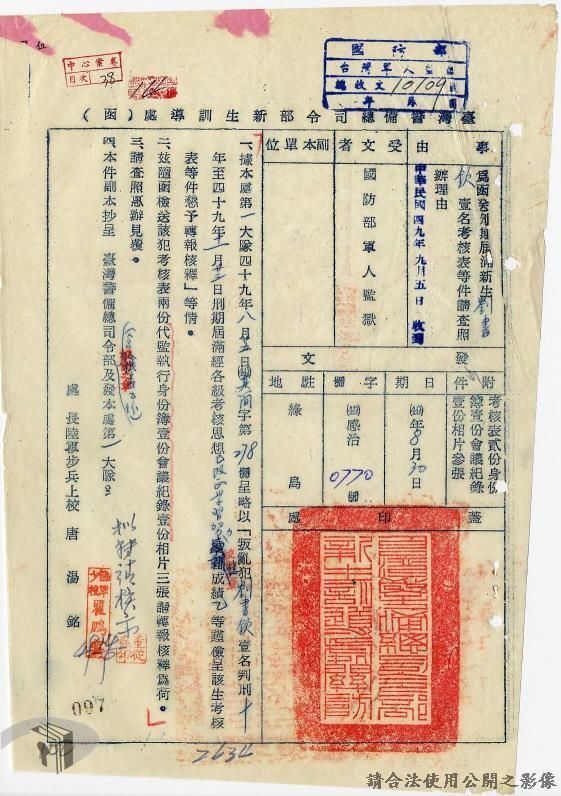 中心案卷
目次 38
國防部
台灣軍人監獄
總收文 10109 號
年 月 日
臺灣警備總司令部新生訓導處（函）
事由
為函送刑期屆滿新生劉書
欽壹名考核表等件請查照
辦理由
中華民國四九年九月五日 收到
受文者
國防部軍人監獄
副本單位
發文
附件
考核表貳份身份
簿壹份會議紀錄
壹份相片參張
日期
(49)年8月30日
字號
(49)感治
0770號
駐地
綠島
蓋印處
一、據本處第一大隊四十九年八月
字第278號呈略以「叛亂犯劉書欽壹名判刑十
年至四十九年十一月廿三日刑期屆滿經各級考核思想
成績乙等謹檢呈該生考核
表等件懇予轉報核釋」等情。
二、茲隨函檢送該犯考核表兩份代監執行身份簿壹份會議紀錄壹份相片三張請轉報核釋為荷。
三、請查照惠辦見覆。
四、本件副本抄呈 臺灣警備總司令部及發本處第一大隊。
處長陸軍步兵上校 唐湯銘
097
2634
請合法使用公開之影像